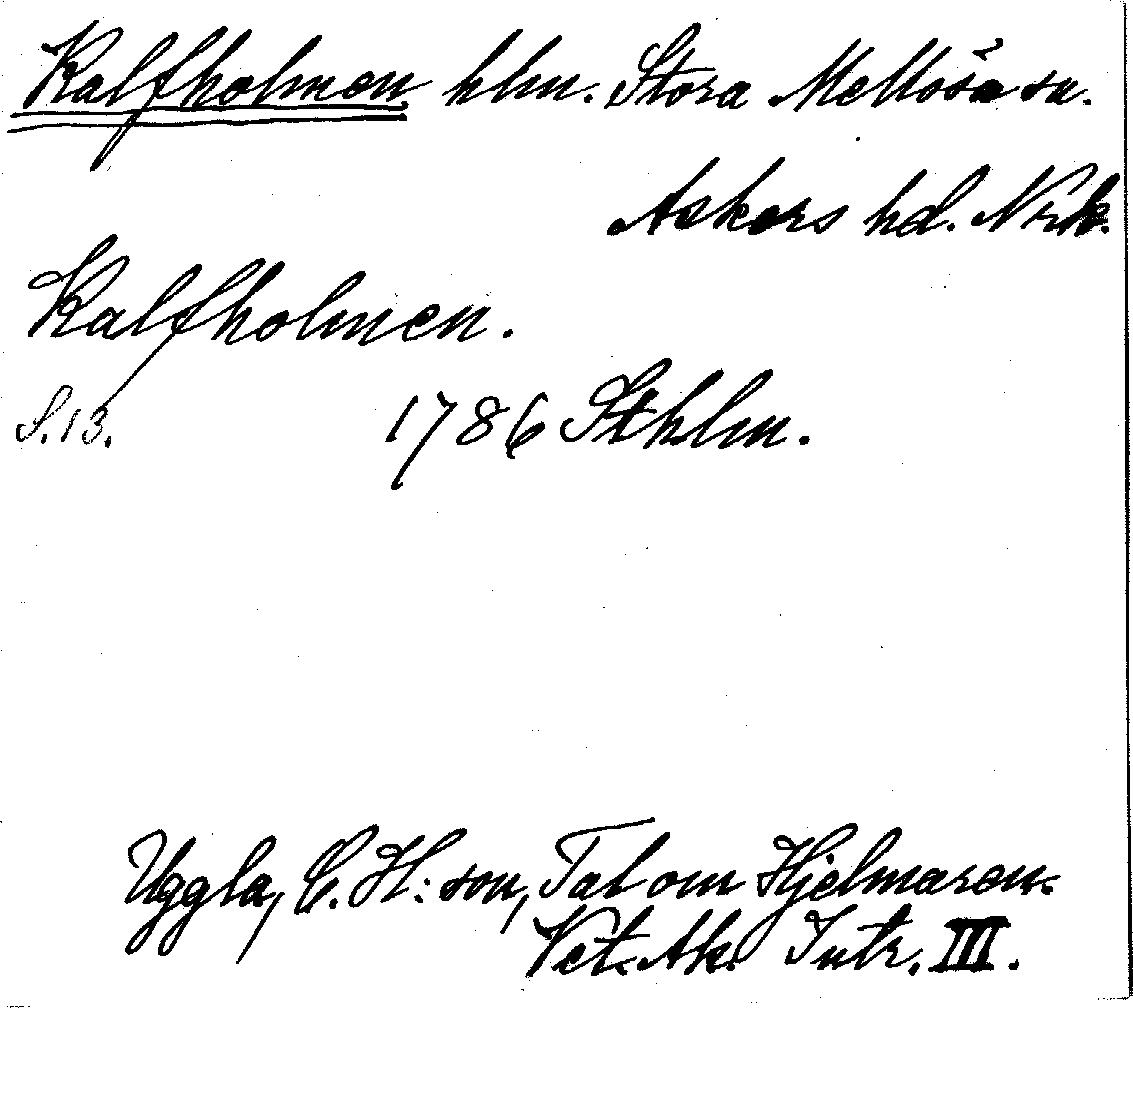 Kalfholmen hlm. Stora Mellösa sn.
Askers hd. Nrk.
Kalfholmen.
S. 13. 1786 Sthlm.
Uggla, C. H:son, Tal om Hjelmaren.
Vet. Ak. Intr. III.